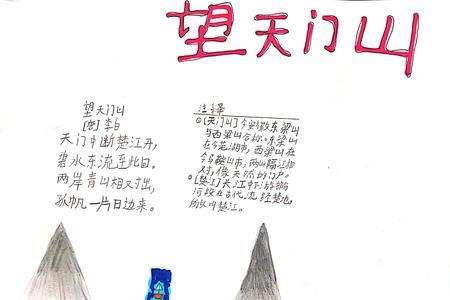 望天门山
望天门山
[唐]李白
天门中断楚江开,
碧水东流至此回。
两岸青山相对出,
孤帆一片日边来。
注释
①[天门山]今安徽东梁山
与西梁山合称。东梁山
在今芜湖市,西梁山在
今马鞍山市,两山隔江相
对,像天然的门户。
②[楚江]长江中游
河段在古代流经楚地,
所以叫楚江。